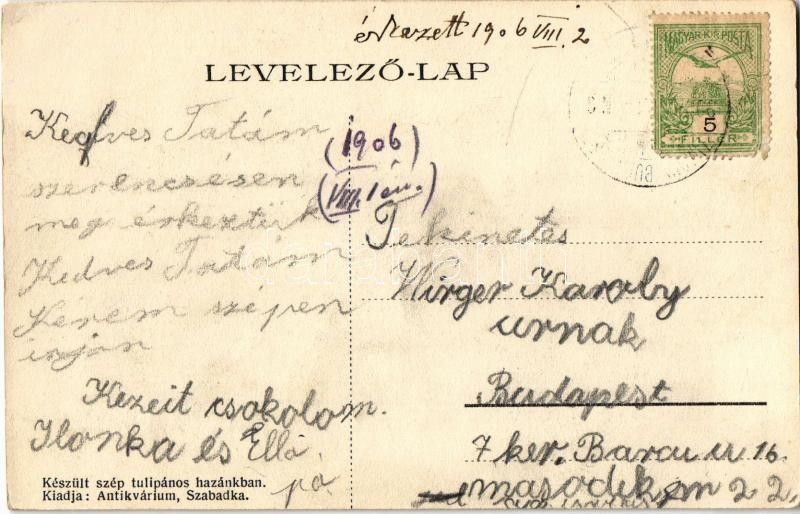 érkezett 1906 VIII. 2
LEVELEZŐ-LAP
MAGYAR KIR. POSTA
5
FILLÉR
(1906
VIII. 1 én.)
Kedves Tatám
szerencsésen
meg érkeztük
Kedves Tatám
Kérem szépen
irjon
Kezeit csokolom.
Ilonka és Ella.
pá.
Tekinetes
Wirger Karoly
urnak
Budapest
7 ker. Barcu u 16.
masodik m 22.
Készült szép tulipános hazánkban.
Kiadja: Antikvárium, Szabadka.